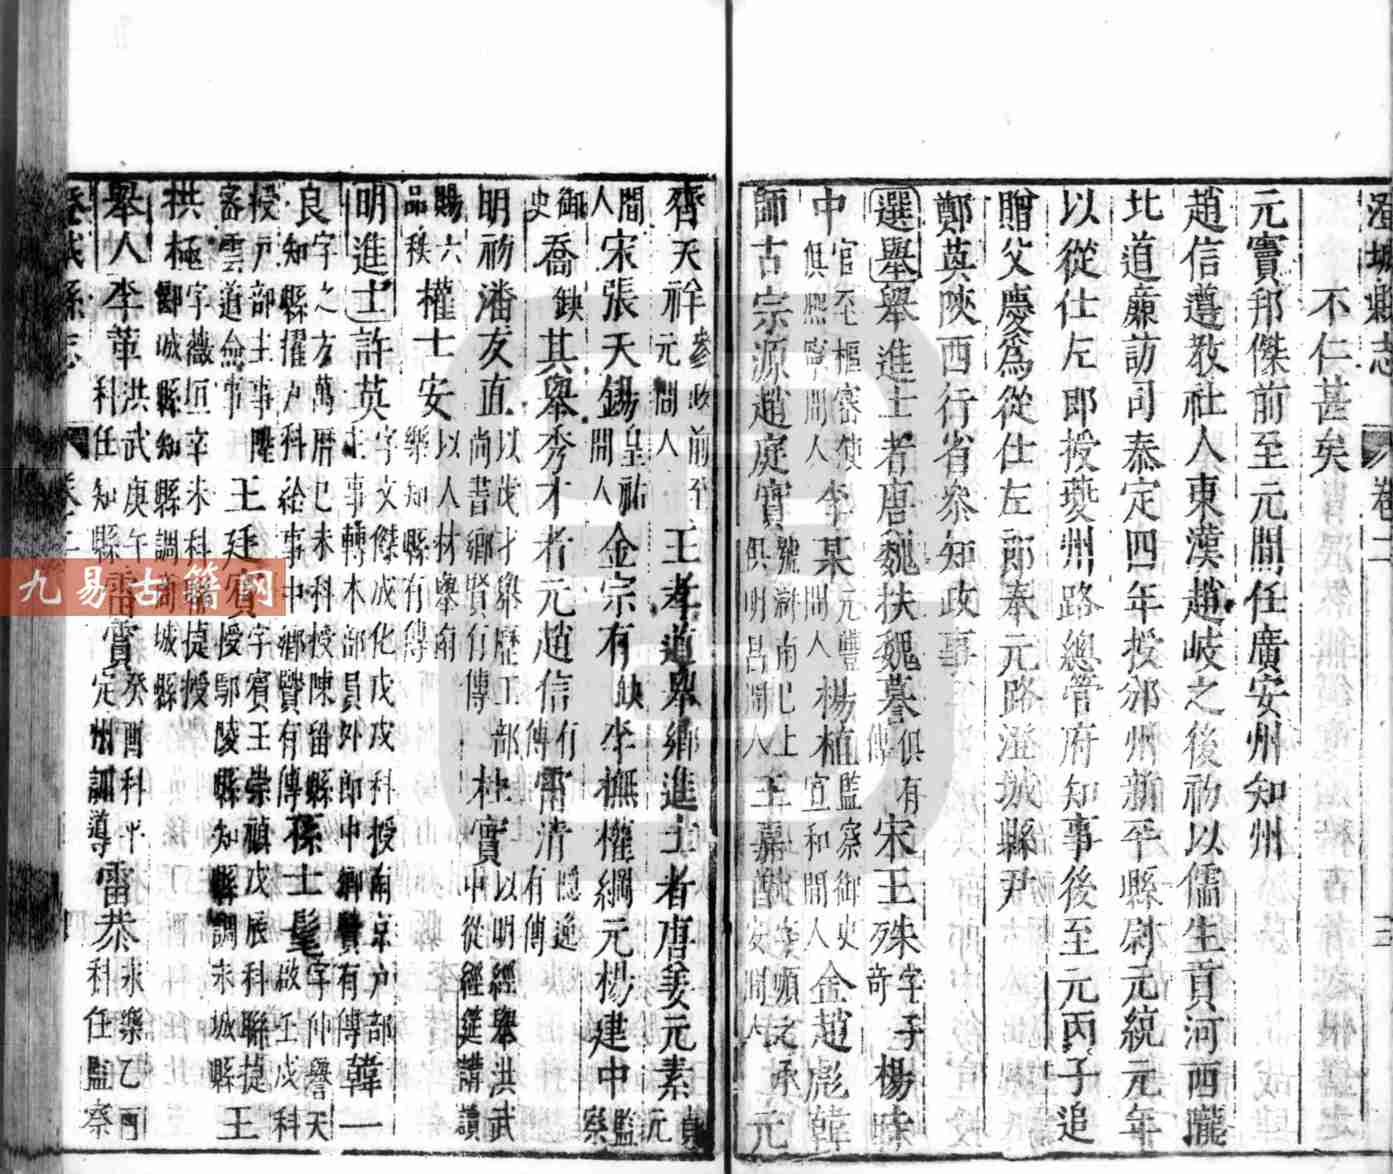 澄城縣志 卷二
不仁甚矣
元竇邦傑前至元間任廣安州知州
趙信遵教社人東漢趙岐之後初以儒生貢河西隴
北道廉訪司泰定四年授邠州新平縣尉元統元年
以從仕左郎授夔州路總管府知事後至元丙子追
贈父慶爲從仕左郎奉元路澄城縣尹
鄭英陝西行省叅知政事
選舉 舉進士者唐魏扶魏䑃俱有傳宋王殊字子奇楊
中官至樞密使俱熙寧間人李某元豐間人楊植監察御史宣和間人金趙彪韓
師古宗源趙庭實俱明昌間人王嘉元
齊天祥參政前至元間人王孝道鼎鄉進士者唐姜元素
間人宋張天錫皇祐間人金宗有缺李撫權綱元楊建中監察
御史喬缺其舉秀才者元趙信有傳雷清隱逸有傳
明初潘友直以茂才舉歷工部尚書鄉賢有傳杜實以明經舉洪武中從經筵講讀
賜六品秩權士安以人材舉南樂知縣有傳
明進士許英字文傑成化戊戌科授南京戶部主事轉本部員外郎中鄉賢有傳韓一
良字之方萬曆己未科授陳留縣知縣擢戶科給事中鄉賢有傳孫士髦字仲譽天啟壬戌科
授戶部主事陞密雲道僉事王廷賓字賓王崇禎戊辰科聯捷授鄢陵縣知縣調末城縣王
拱極字薇垣辛未科聯捷授鄆城縣知縣調商城縣
舉人李華洪武庚午科任知縣雷賓癸酉科平定州訓導雷恭永樂乙酉科任監察